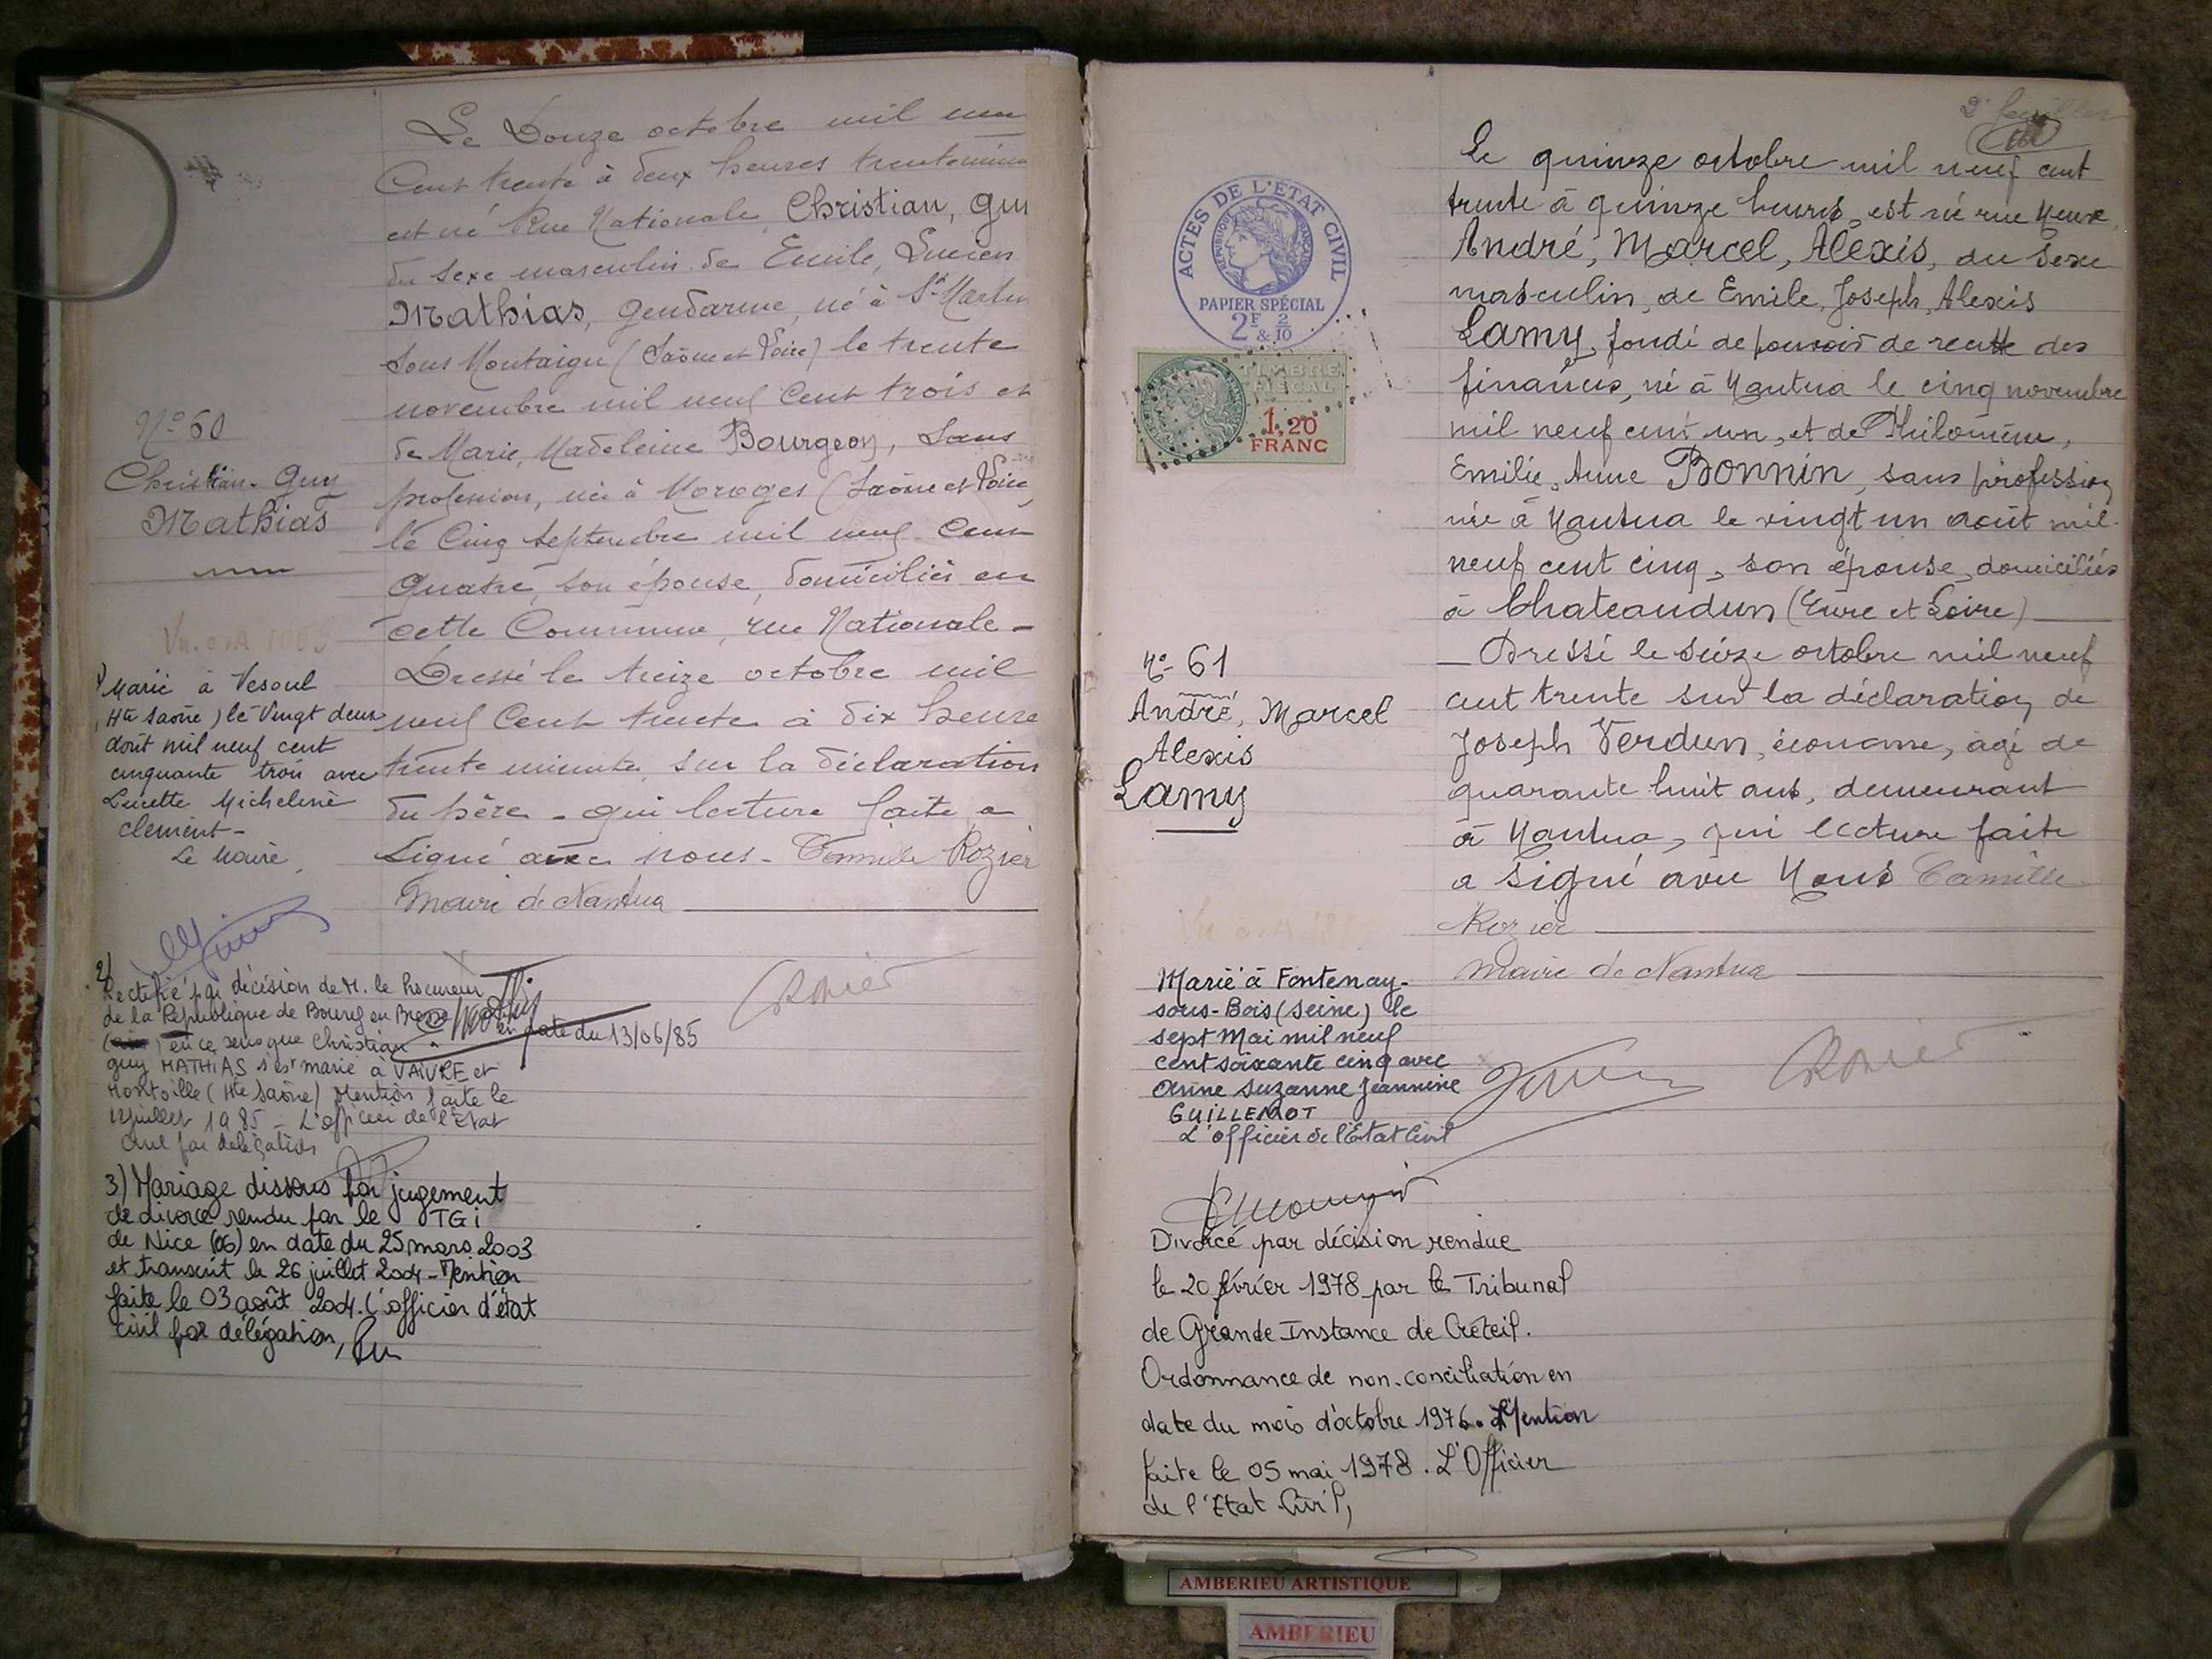 Le Douze octobre mil neu
Cent trente à deux heures trente minu
est né Rue Nationale, Christian, Guy
du sexe masculin de Emile, Lucien
Mathias, gendarme, né à St Martin
sous Montaigu (Saône et Loire) le trente
novembre mil neuf cent trois et
de Marie, Madeleine Bourgeon, sans
profession, née à Moroges (Saône et Loire
le Cinq septembre mil neuf cent
quatre, son épouse, domiciliés en
cette Commune, rue Nationale -
Dressé le treize octobre mil
neuf cent trente à dix heure
trente minute, sur la déclaration
du père - qui lecture faite a
signé avec nous - Camille Rozier
Maire de Nantua
Rozier
N° 60
Christian - Guy
Mathias
1) Marié à Vesoul
(Hte Saône) le Vingt deux
août mil neuf cent
cinquante trois avec
Lucette Micheline
Clement -
Le Maire,
2) Rectifié par décision de M. le Procureur
de la République de Bourg en Bresse
en date du 13/06/85
en ce sens que Christian
Guy MATHIAS s'est marié à VAIVRE et
Montoille (Hte Saône) Mention faite le
juillet 1985 - L'officier de l'Etat
Civil par délégation
3) Mariage dissous par jugement
de divorce rendu par le TGi
de Nice (06) en date du 25 mars 2003
et transcrit le 26 juillet 2004 - Mention
faite le 03 août 2004. L'officier d'état
civil par délégation,
2e feuillet
ACTES DE L'ETAT CIVIL
REPUBLIQUE FRANÇAISE
PAPIER SPÉCIAL
2F & 2/10
TIMBRE
FISCAL
1,20
FRANC
Le quinze octobre mil neuf cent
trente à quinze heures, est né rue Neuve
André, Marcel, Alexis, du sexe
masculin, de Emile, Joseph, Alexis
Lamy, fondé de pouvoir de recette des
finances, né à Nantua le cinq novembre
mil neuf cent un, et de Philomène,
Emilie, Anne Bonnin, sans profession
née à Nantua le vingt un août mil
neuf cent cinq, son épouse, domiciliés
à Chateaudun (Eure et Loire)
- Dressé le seize octobre mil neuf
cent trente sur la déclaration de
Joseph Verdun, économe, âgé de
quarante huit ans, demeurant
à Nantua, qui lecture faite
a signé avec Nous Camille
Rozier
Maire de Nantua
Rozier
N° 61
André, Marcel
Alexis
Lamy
Marié à Fontenay-
sous-Bois (Seine) le
sept Mai mil neuf
cent soixante cinq avec
Anne Suzanne Jeannine
GUILLEMOT
L'officier de l'Etat Civil
Divorcé par décision rendue
le 20 février 1978 par le Tribunal
de Grande Instance de Créteil.
Ordonnance de non-conciliation en
date du mois d'octobre 1976. Mention
faite le 05 mai 1978. L'Officier
de l'Etat Civil,
AMBERIEU ARTISTIQUE
AMBERIEU